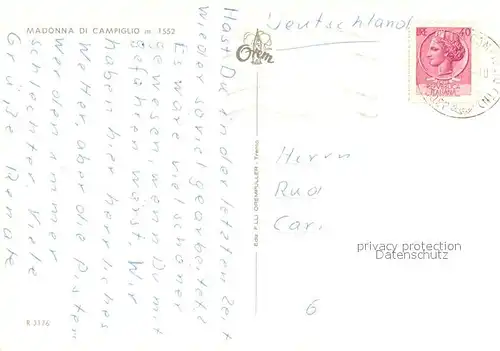 MADONNA DI CAMPIGLIO m 1552
Hast Du in der letzten Zeit
wieder so viel gearbeitet?
Es wäre viel schöner
gewesen, wenn Du mit
gefahren wärst. Wir
haben hier herrliches
Wetter, aber die Pisten
werden immer
schlechter. Viele
Grüße Renate
K 3176
Orem
Ediz. F.LLI OREMPULLER - Trento
Deutschland
LIRE 40
REPUBBLICA
ITALIANA
Herrn
Rud
Car
6
privacy protection
Datenschutz